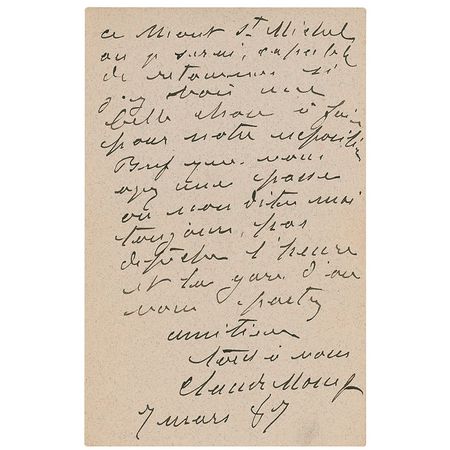 ce Mont St Michel
ou je serai capable
de retourner si
j'y vois une
belle chose à faire
pour notre exposition
Bref que vous
ayez une passe
ou non dites moi
toujours par
dépêche l'heure
et la gare d'où
vous partez
amitiés
tout à vous
Claude Monet
7 mars 87